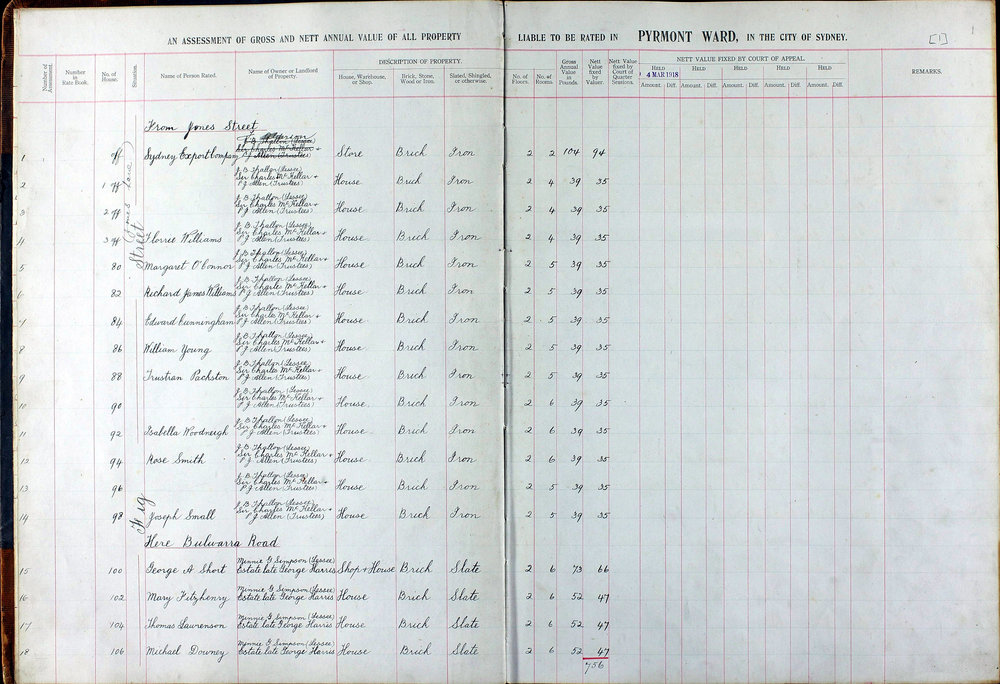 AN ASSESSMENT OF GROSS AND NETT ANNUAL VALUE OF ALL PROPERTY LIABLE TO BE RATED IN PYRMONT WARD, IN THE CITY OF SYDNEY. [1] 1
Number of Assessment. Number in Rate Book. No. of House. Situation. Name of Person Rated. Name of Owner or Landlord of Property. DESCRIPTION OF PROPERTY. House, Warehouse, or Shop. Brick, Stone, Wood or Iron. Slated, Shingled, or otherwise. No. of Floors. No. of Rooms. Gross Annual Value in Pounds. Nett Value fixed by Valuer. Nett Value fixed by Court of Quarter Sessions. NETT VALUE FIXED BY COURT OF APPEAL REMARKS.
HELD HELD HELD HELD HELD
4 MAR 1918
Amount. Diff. Amount. Diff. Amount. Diff. Amount. Diff. Amount. Diff.
Fig Street
Jones Lane
From Jones Street
J B Thallon (Lessee)
Sir Charles McKellar +
1 off Sydney Export Company P J Allen (Trustees) Store Brick Iron 2 2 104 94
J B Thallon (Lessee)
Sir Charles McKellar +
2 1 off P J Allen (Trustees) House Brick Iron 2 4 39 35
J B Thallon (Lessee)
Sir Charles McKellar +
3 2 off P J Allen (Trustees) House Brick Iron 2 4 39 35
J B Thallon (Lessee)
Sir Charles McKellar +
4 3 off Florrie Williams P J Allen (Trustees) House Brick Iron 2 4 39 35
J B Thallon (Lessee)
Sir Charles McKellar +
5 80 Margaret O'Connor P J Allen (Trustees) House Brick Iron 2 5 39 35
J B Thallon (Lessee)
Sir Charles McKellar +
6 82 Richard James Williams P J Allen (Trustees) House Brick Iron 2 5 39 35
J B Thallon (Lessee)
Sir Charles McKellar +
7 84 Edward Cunningham P J Allen (Trustees) House Brick Iron 2 5 39 35
J B Thallon (Lessee)
Sir Charles McKellar +
8 86 William Young P J Allen (Trustees) House Brick Iron 2 5 39 35
J B Thallon (Lessee)
Sir Charles McKellar +
9 88 Trustran Packston P J Allen (Trustees) House Brick Iron 2 5 39 35
J B Thallon (Lessee)
Sir Charles McKellar +
10 90 P J Allen (Trustees) House Brick Iron 2 6 39 35
J B Thallon (Lessee)
Sir Charles McKellar +
11 92 Isabella Woodneigh P J Allen (Trustees) House Brick Iron 2 6 39 35
J B Thallon (Lessee)
Sir Charles McKellar +
12 94 Rose Smith P J Allen (Trustees) House Brick Iron 2 6 39 35
J B Thallon (Lessee)
Sir Charles McKellar +
13 96 P J Allen (Trustees) House Brick Iron 2 5 39 35
J B Thallon (Lessee)
Sir Charles McKellar +
14 98 Joseph Small P J Allen (Trustees) House Brick Iron 2 5 39 35
Here Bulwarra Road
Minnie G Simpson (Lessee)
15 100 George A Short Estate late George Harris Shop + House Brick Slate 2 6 73 66
Minnie G Simpson (Lessee)
16 102 Mary Fitzhenry Estate late George Harris House Brick Slate 2 6 52 47
Minnie G Simpson (Lessee)
17 104 Thomas Lawrenson Estate late George Harris House Brick Slate 2 6 52 47
Minnie G Simpson (Lessee)
18 106 Michael Downey Estate late George Harris House Brick Slate 2 6 52 47
756